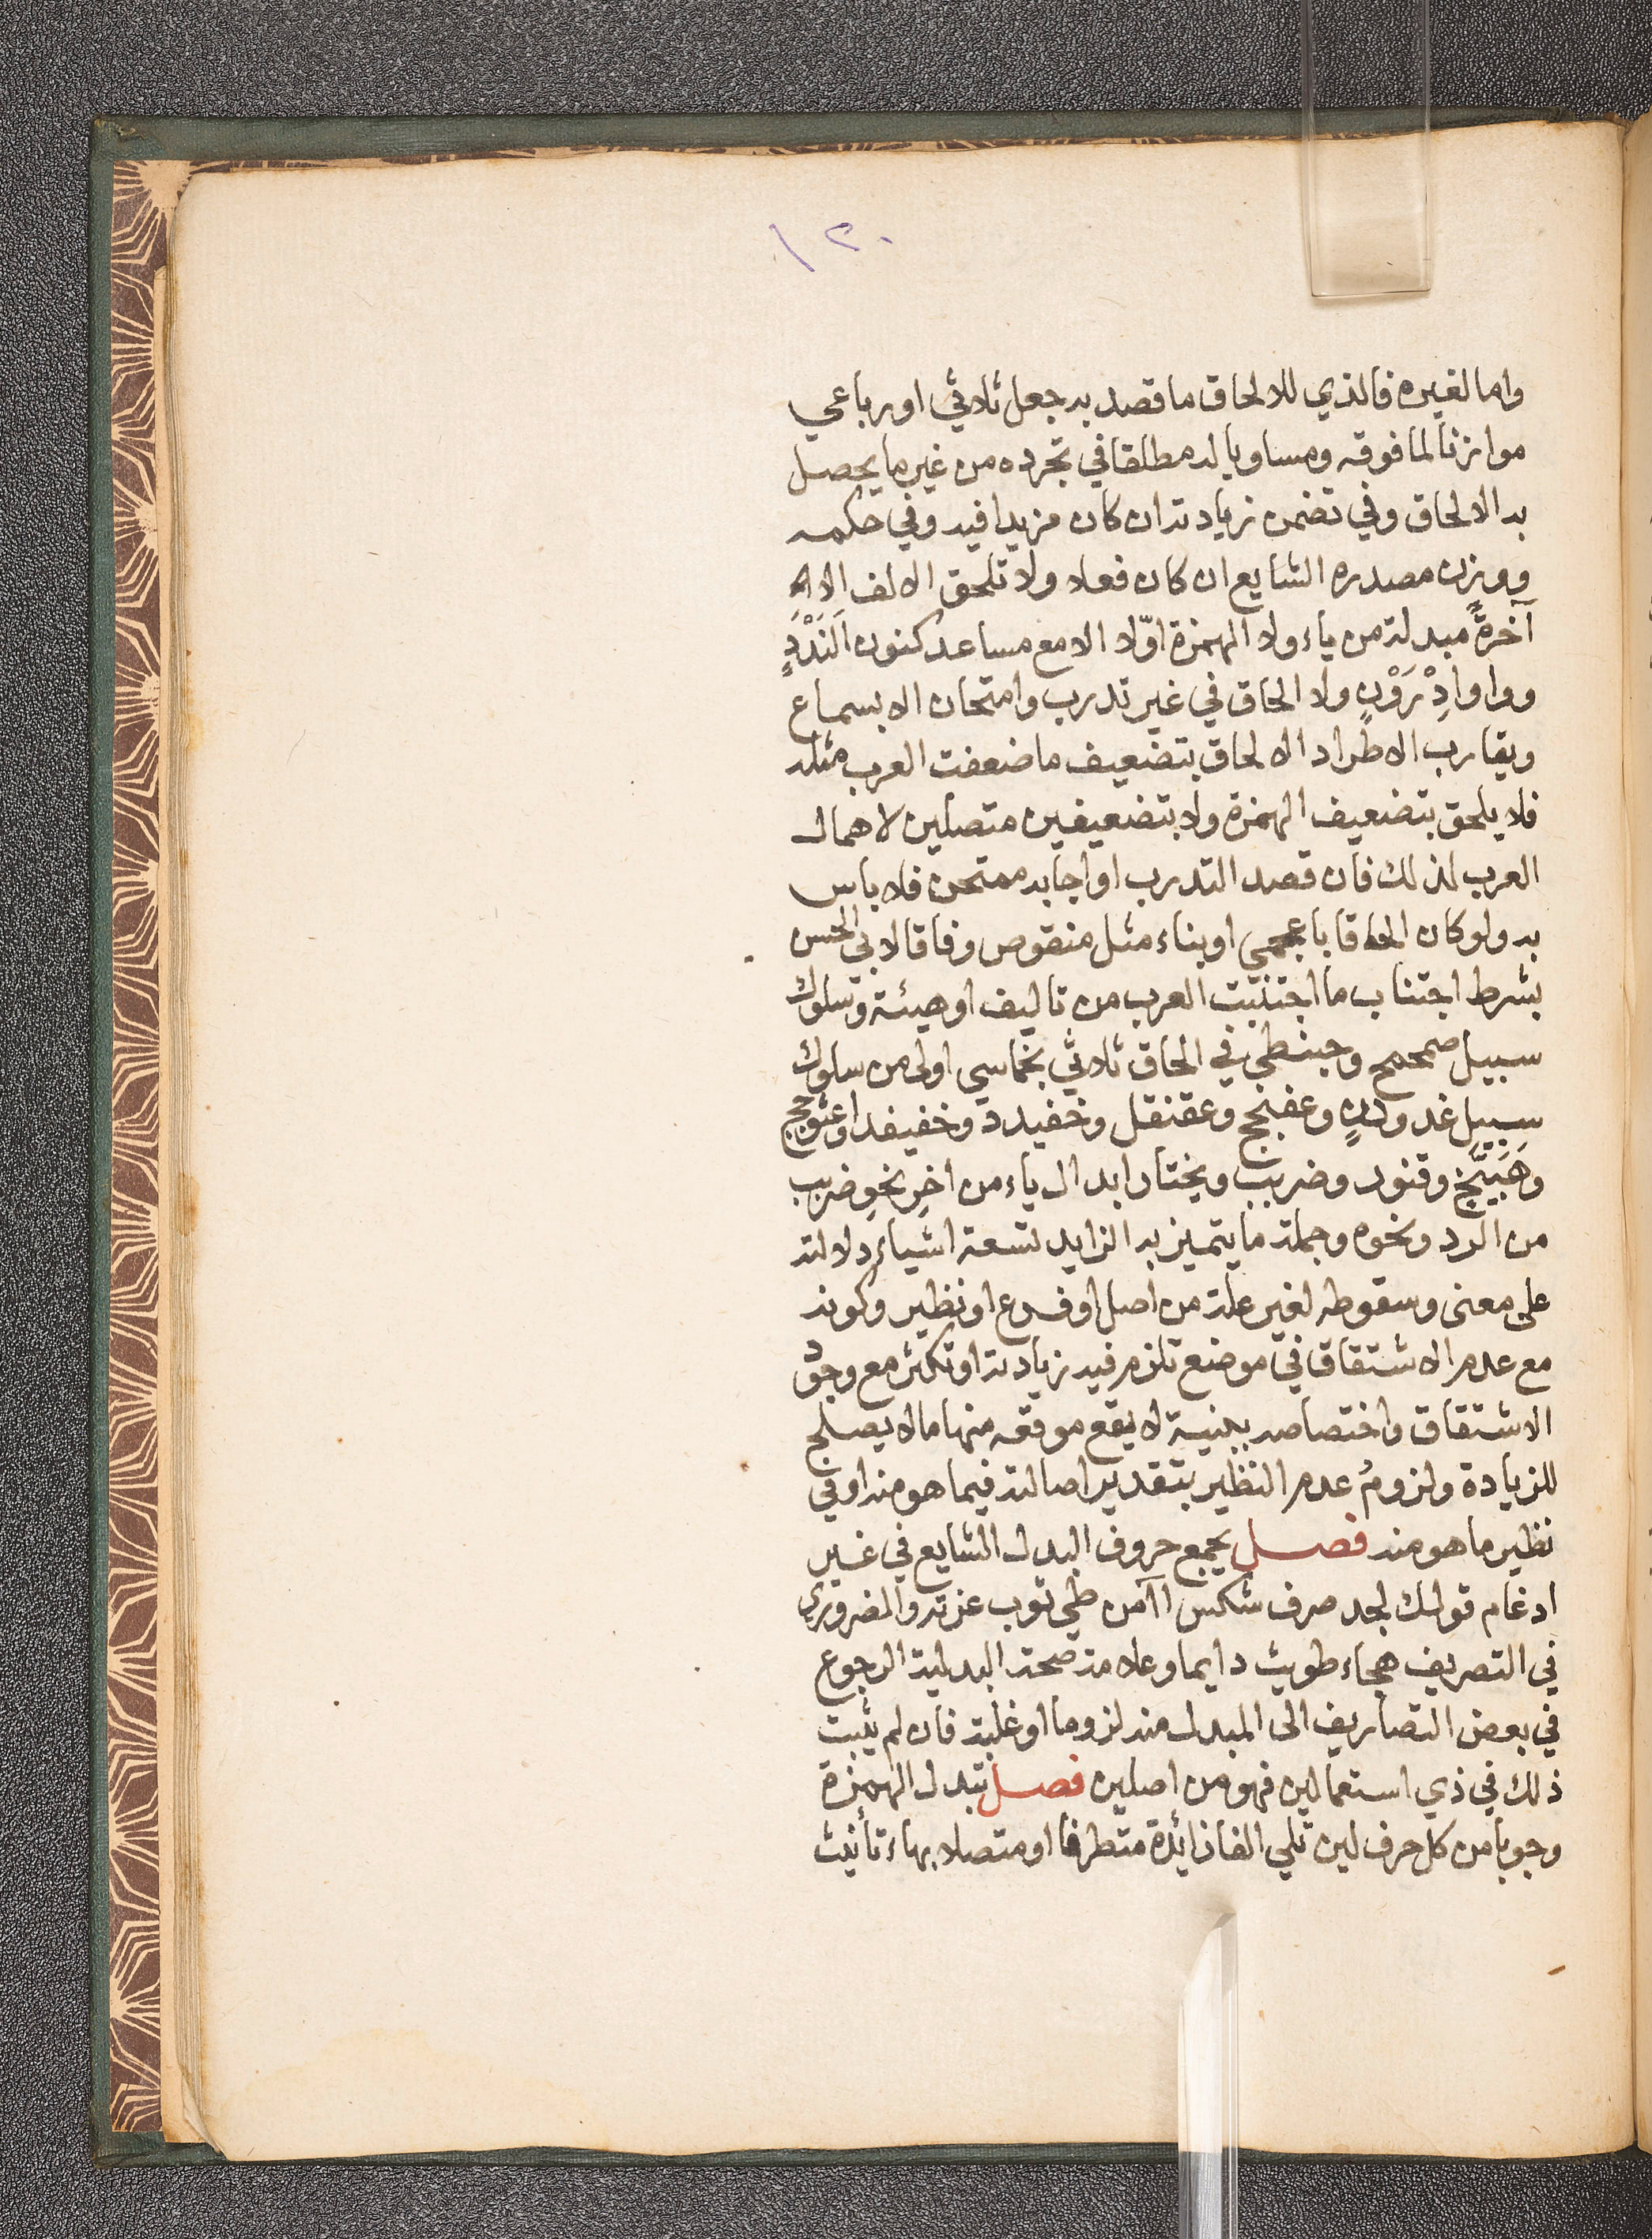 ١٢٠
واما لغيره فالذي للالحاق ما قصد به جعل ثلاثي او رباعي
موازنا لما فوقه ومساويا له مطلقا في تجرده من غير ما يحصل
به الالحاق وفي تضمن زيادته ان كان مزيدا فيه وفي حكمه
ووزن مصدره الشايع ان كان فعلا ولا تلحق الالف الا
آخرةً مبدلة من ياء ولا الهمزة اوّلا الا مع مساعد كنون اَلَنْدَدٍ
وواو اِدْرَوْنٍ ولا الحاق في غير تدرب وامتحان الا بسماع
ويقارب الاطراد الالحاق بتضعيف ما ضعفت العرب مثله
فلا يلحق بتضعيف الهمزة ولا بتضعيفين متصلين لاهمال
العرب لذلك فان قصد التدرب او اجابه ممتحن فلا باس
به ولو كان الحاقا باعجمي او بناء مثل منقوص وفاقا لابي الحسن
بشرط اجتناب ما اجتنبت العرب من تاليف او هيئة وسلوك
سبيل صمحمح وحبنطى في الحاق ثلاثي بخماسي اولى من سلوك
سبيل غدودن وعفنجج وعقنقل وخفيدد وخفيفد او عثوجج
وهَبَيَّخ وقنور وضربب ويختار ابدال ياء من اخِر نحوِ ضربب
من الرد ونحوه وجملة ما يتميز به الزايد تسعة اشياء دلالته
على معنى وسقوطه لغير علة من اصل او فرع او نظير وكونه
مع عدم الاشتقاق في موضع تلزم فيه زيادته او تكثر مع وجود
الاشتقاق واختصاصه ببنية لا يقع موقعه منها ما لا يصلح
للزيادة ولزومُ عدم النظير بتقدير اصالته فيما هو منه او في
نظير ما هو منه فصل يجمع حروف البدل الشايع في غير
ادغام قولك لجد صرف شكس اآمن طي ثوب عزته والضروري
في التصريف هجاء طويت دايما وعلامة صحة البدلية الرجوع
في بعض التصاريف الى المبدل منه لزوما او غلبة فان لم يثبت
ذلك في ذي استعمالين فهو من اصلين فصل تبدل الهمزة
وجوبا من كل حرف لين تلي الفا زائدة متطرفا او متصلا بهاء تأنيث